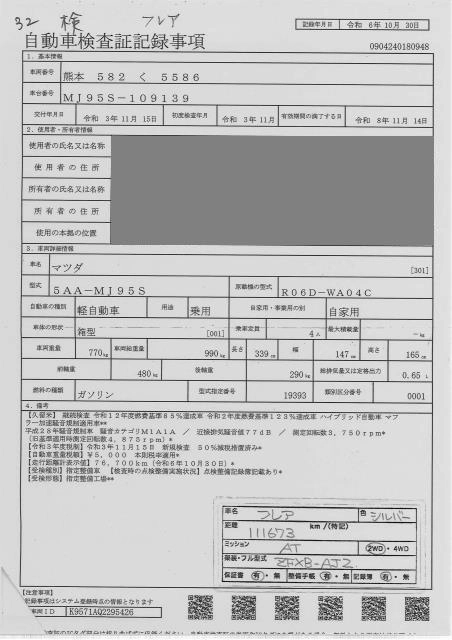 32 検 フレア
記録年月日 令和 6年10月30日
自動車検査証記録事項
0904240180948
1. 基本情報
車両番号 熊本 582 く 5586
車台番号 MJ95S-109139
交付年月日 令和 3年11月15日 初度検査年月 令和 3年11月 有効期間の満了する日 令和 8年11月14日
2. 使用者・所有者情報
使用者の氏名又は名称
使用者の住所
所有者の氏名又は名称
所有者の住所
使用の本拠の位置
3. 車両詳細情報
車名 マツダ [301]
型式 5AA-MJ95S 原動機の型式 R06D-WA04C
自動車の種別 軽自動車 用途 乗用 自家用・事業用の別 自家用
車体の形状 箱型 [001] 乗車定員 4人 最大積載量 -kg
車両重量 770kg 車両総重量 990kg 長さ 339cm 幅 147cm 高さ 165cm
前軸重 480kg 後軸重 290kg 総排気量又は定格出力 0.65L
燃料の種類 ガソリン 型式指定番号 19393 類別区分番号 0001
4. 備考
【久留米】 継続検査 令和12年度燃費基準85%達成車 令和2年度燃費基準123%達成車 ハイブリッド自動車 マフ
ラー加速騒音規制適用車**
平成28年騒音規制車 騒音カテゴリM1A1A / 近接排気騒音値77dB / 測定回転数3,750rpm*
(旧基準適用時測定回転数4,875rpm)*
【令和3年度税制】令和3年11月15日 新規検査 50%減税措置済み*
【自動車重量税額】¥5,000 本則税率適用*
【走行距離計表示値】76,700km(令和6年10月30日)*
【受検種別】指定整備車 【検査時の点検整備実施状況】点検整備記録簿記載あり*
【受検形態】指定整備工場**
車名 フレア 色 シルバー
距離 111673 km/(特記)
ミッション AT 2WD・4WD
架装・フル型式 ZFXB-AJ2
保証書 有・無 整備手帳 有・無 記録簿 有・無
【注意事項】
記録事項はシステム登録時点の情報となります
車両ID K9571AQ2295426